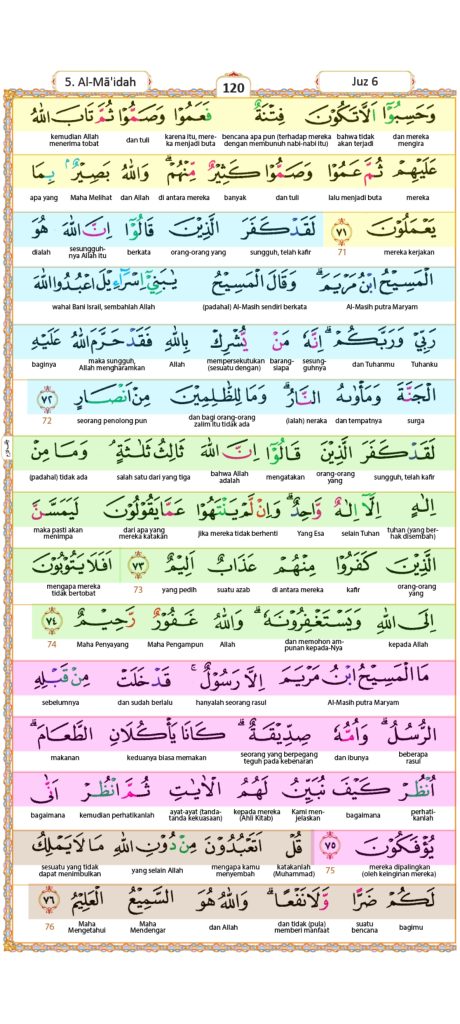 5. Al-Mā'idah
120
Juz 6
وَحَسِبُوْٓا اَلَّا تَكُوْنَ فِتْنَةٌ فَعَمُوْا وَصَمُّوْا ثُمَّ تَابَ اللّٰهُ
dan mereka mengira bahwa tidak akan terjadi bencana apa pun (terhadap mereka dengan membunuh nabi-nabi itu) karena itu, mereka menjadi buta dan tuli kemudian Allah menerima tobat
عَلَيْهِمْ ثُمَّ عَمُوْا وَصَمُّوْا كَثِيْرٌ مِّنْهُمْۗ وَاللّٰهُ بَصِيْرٌۢ بِمَا
mereka lalu menjadi buta dan tuli banyak di antara mereka dan Allah Maha Melihat apa yang
يَعْمَلُوْنَ ٧١ لَقَدْ كَفَرَ الَّذِيْنَ قَالُوْٓا اِنَّ اللّٰهَ هُوَ
mereka kerjakan 71 sungguh, telah kafir orang-orang yang berkata sesungguhnya Allah itu dialah
الْمَسِيْحُ ابْنُ مَرْيَمَۗ وَقَالَ الْمَسِيْحُ يٰبَنِيْٓ اِسْرَاۤءِيْلَ اعْبُدُوا اللّٰهَ
Al-Masih putra Maryam (padahal) Al-Masih sendiri berkata wahai Bani Israil, sembahlah Allah
رَبِّيْ وَرَبَّكُمْۗ اِنَّهٗ مَنْ يُّشْرِكْ بِاللّٰهِ فَقَدْ حَرَّمَ اللّٰهُ عَلَيْهِ
Tuhanku dan Tuhanmu sesungguhnya barangsiapa mempersekutukan (sesuatu dengan) Allah maka sungguh, Allah mengharamkan baginya
الْجَنَّةَ وَمَأْوٰىهُ النَّارُۗ وَمَا لِلظّٰلِمِيْنَ مِنْ اَنْصَارٍ ٧٢
surga dan tempatnya (ialah) neraka dan bagi orang-orang zalim itu tidak ada seorang penolong pun 72
لَقَدْ كَفَرَ الَّذِيْنَ قَالُوْٓا اِنَّ اللّٰهَ ثَالِثُ ثَلٰثَةٍۘ وَمَا مِنْ
sungguh, telah kafir orang-orang yang mengatakan bahwa Allah adalah salah satu dari yang tiga (padahal) tidak ada
اِلٰهٍ اِلَّآ اِلٰهٌ وَّاحِدٌۗ وَاِنْ لَّمْ يَنْتَهُوْا عَمَّا يَقُوْلُوْنَ لَيَمَسَّنَّ
tuhan (yang berhak disembah) selain Tuhan Yang Esa jika mereka tidak berhenti dari apa yang mereka katakan maka pasti akan menimpa
الَّذِيْنَ كَفَرُوْا مِنْهُمْ عَذَابٌ اَلِيْمٌ ٧٣ اَفَلَا يَتُوْبُوْنَ
orang-orang yang kafir di antara mereka suatu azab yang pedih 73 mengapa mereka tidak bertobat
اِلَى اللّٰهِ وَيَسْتَغْفِرُوْنَهٗۗ وَاللّٰهُ غَفُوْرٌ رَّحِيْمٌ ٧٤
kepada Allah dan memohon ampunan kepada-Nya dan Allah Maha Pengampun Maha Penyayang 74
مَا الْمَسِيْحُ ابْنُ مَرْيَمَ اِلَّا رَسُوْلٌۚ قَدْ خَلَتْ مِنْ قَبْلِهِ
Al-Masih putra Maryam hanyalah seorang rasul dan sudah berlalu sebelumnya
الرُّسُلُۗ وَاُمُّهٗ صِدِّيْقَةٌۗ كَانَا يَأْكُلَانِ الطَّعَامَۗ
beberapa rasul dan ibunya seorang yang berpegang teguh pada kebenaran keduanya biasa memakan makanan
اُنْظُرْ كَيْفَ نُبَيِّنُ لَهُمُ الْاٰيٰتِ ثُمَّ انْظُرْ اَنّٰى
perhatikanlah bagaimana Kami menjelaskan kepada mereka (Ahli Kitab) ayat-ayat (tanda-tanda kekuasaan) kemudian perhatikanlah bagaimana
يُؤْفَكُوْنَ ٧٥ قُلْ اَتَعْبُدُوْنَ مِنْ دُوْنِ اللّٰهِ مَا لَا يَمْلِكُ
mereka dipalingkan (oleh keinginan mereka) 75 katakanlah (Muhammad) mengapa kamu menyembah yang selain Allah sesuatu yang tidak dapat menimbulkan
لَكُمْ ضَرًّا وَّلَا نَفْعًاۗ وَاللّٰهُ هُوَ السَّمِيْعُ الْعَلِيْمُ ٧٦
bagimu suatu bencana dan tidak (pula) memberi manfaat dan Allah Maha Mendengar Maha Mengetahui 76